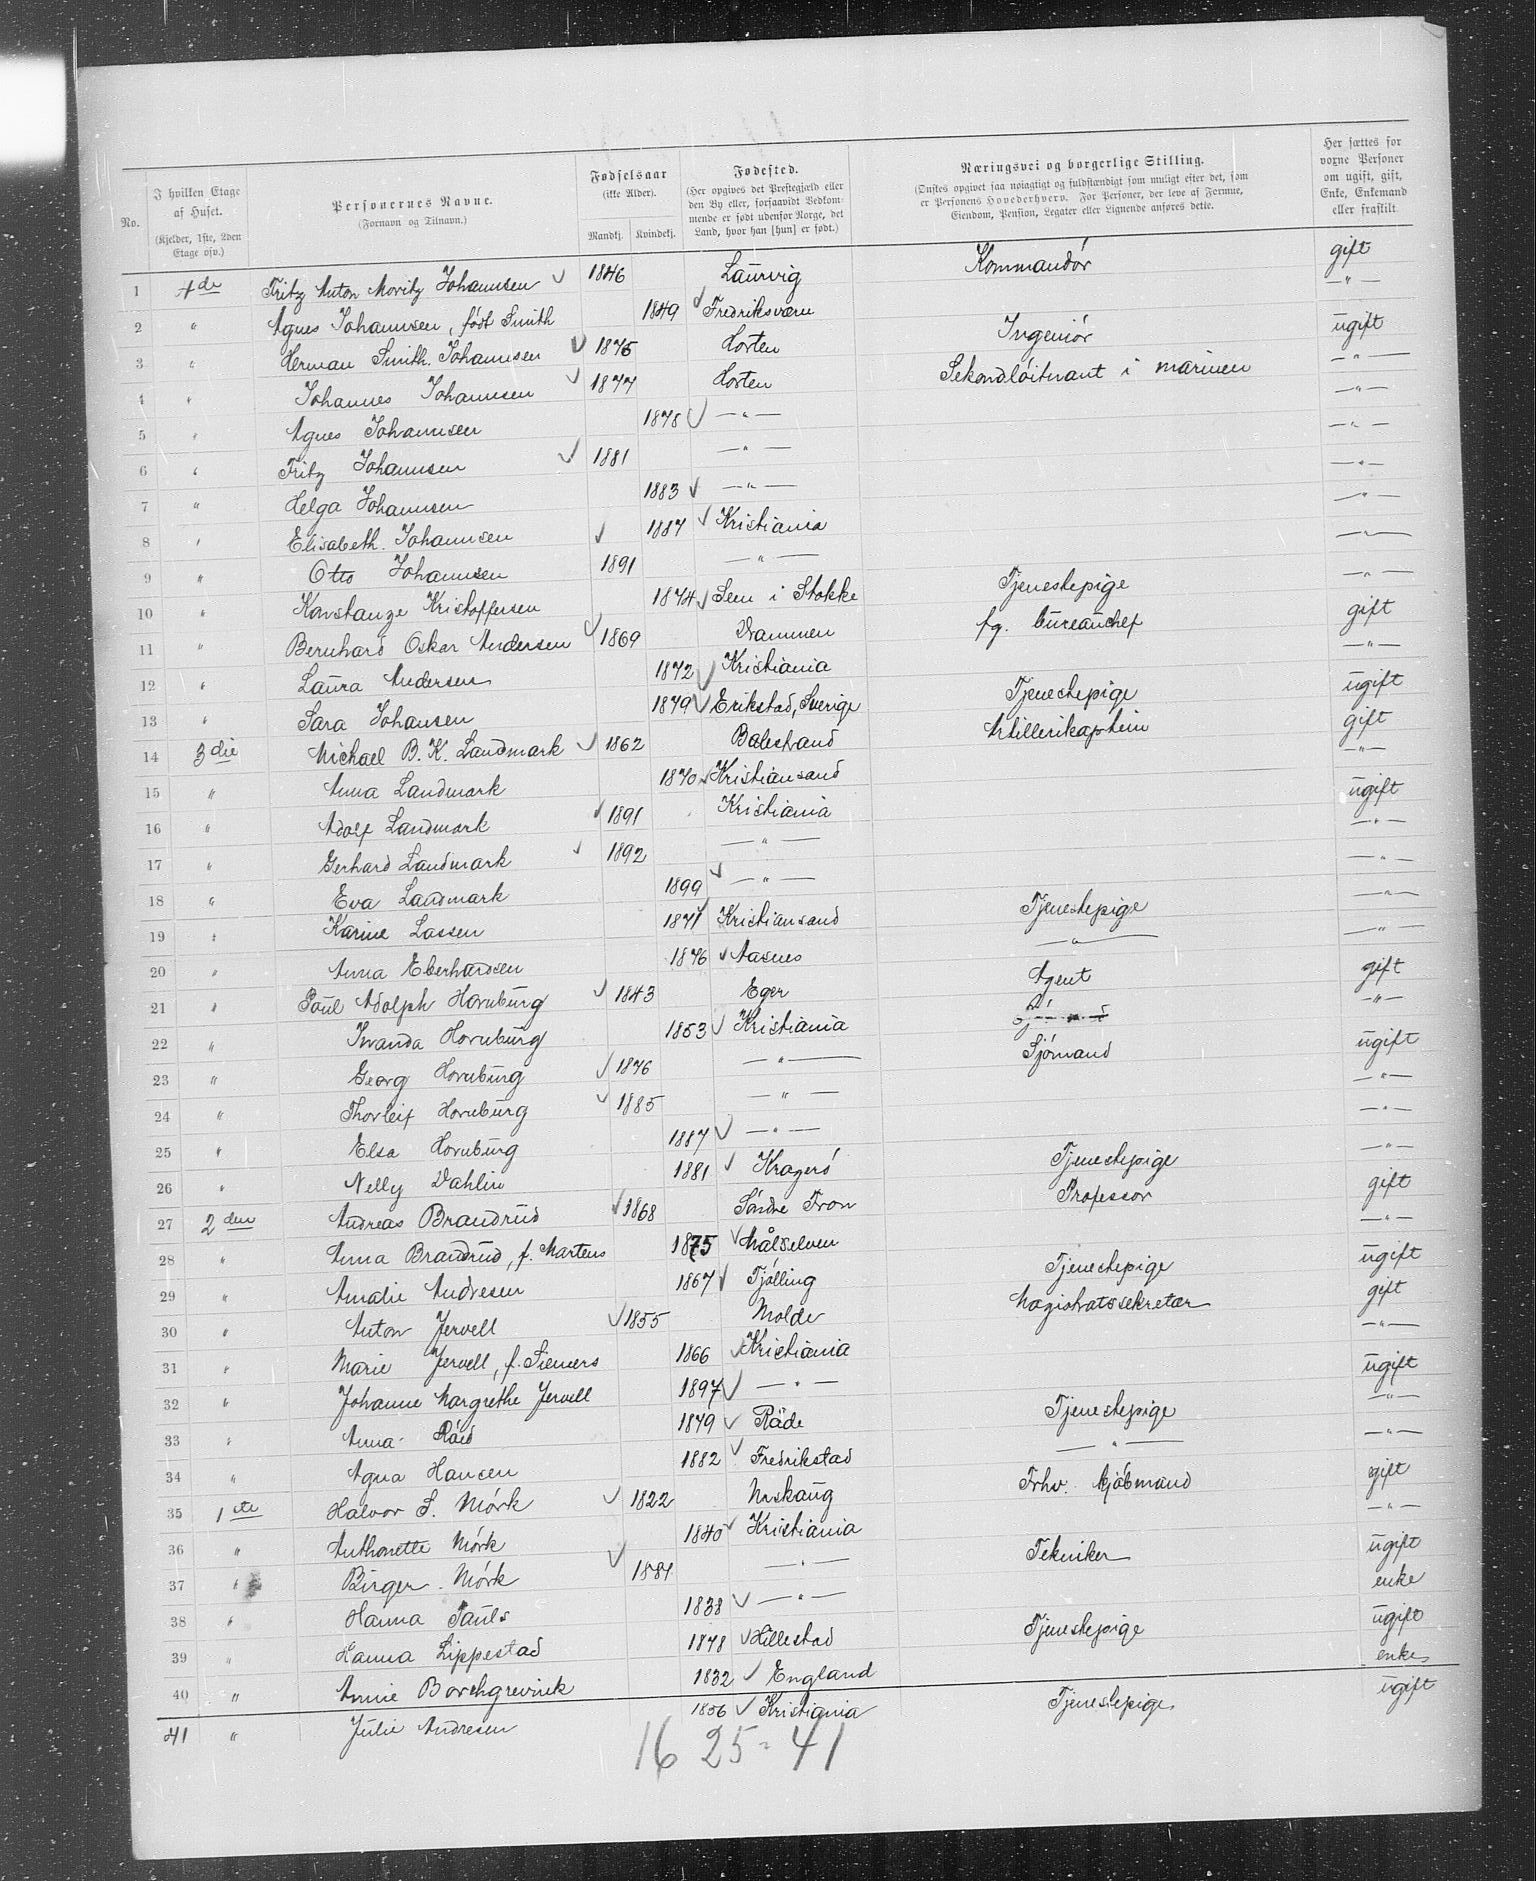 No. | I hvilken Etage af Huset. (Kjelder, 1ste, 2den Etage osv.) | Personernes Navne. (Fornavn og Tilnavn.) | Fødselsaar (ikke Alder). Mandkj. Kvindekj. | Fødested. (Her opgives det Prestegjeld eller den By eller, forsaavidt Vedkommende er født udenfor Norge, det Land, hvor han [hun] er født.) | Næringsvei og borgerlige Stilling. (Ønskes opgivet saa nøiagtigt og fuldstændigt som muligt efter det, som er Personens Hovederhverv. For Personer, der leve af Formue, Eiendom, Pension, Legater eller Lignende anføres dette.) | Her sættes for voxne Personer om ugift, gift, Enke, Enkemand eller fraskilt
1 4de Fritz Anton Moritz Johannsen 1846 Laurvig Kommandør gift
2 " Agnes Johannsen, født Smith 1849 Fredriksværn — " —
3 " Herman Smith. Johannsen 1875 Horten Ingeniør ugift
4 " Johannes Johannsen 1877 Horten Sekondløitnant i marinen — " —
5 " Agnes Johannsen 1878 — " — — " —
6 " Fritz Johannsen 1881 — " — — " —
7 " Helga Johannsen 1883 — " — — " —
8 " Elisabeth. Johannsen 1887 Kristiania — " —
9 " Otto Johannsen 1891 — " — — " —
10 " Konstanze Kristoffersen 1874 Sem i Stokke Tjenestepige — " —
11 " Bernhard Oskar Andersen 1869 Drammen fg. bureauchef gift
12 " Laura Andersen 1872 Kristiania — " —
13 " Sara Johansen 1879 Erikstad, Sverige Tjenestepige ugift
14 3die Michael B. K. Landmark 1862 Balestrand Artillerikaptein gift
15 " Anna Landmark 1870 Kristiansand — " —
16 " Adolf Landmark 1891 Kristiania ugift
17 " Gerhard Landmark 1892 — " — — " —
18 " Eva Landmark 1899 — " — — " —
19 " Karine Lassen 1871 Kristiansand Tjenestepige — " —
20 " Anna Eberhardsen 1876 Aasnes — " — — " —
21 " Paul Adolph Hornburg 1843 Eger Agent gift
22 " Iwanda Hornburg 1853 Kristiania — " —
23 " Georg Hornburg 1876 — " — Sjømand ugift
24 " Thorleif Hornburg 1885 — " — — " —
25 " Elsa Hornburg 1887 — " — — " —
26 " Nelly Dahlin 1881 Kragerø Tjenestepige — " —
27 2den Andreas Brandrud 1868 Søndre Fron Professor gift
28 " Anna Brandrud, f. Martens 1875 Målselven — " —
29 " Amalie Andresen 1867 Tjølling Tjenestepige ugift
30 " Anton Jervell 1855 Molde Magistratssekretær gift
31 " Marie Jervell, f. Siemers 1866 Kristiania — " —
32 " Johanne Margrethe Jervell 1897 — " — ugift
33 " Anna 1879 Råde Tjenestepige — " —
34 " Agna Hansen 1882 Fredrikstad — " — — " —
35 1ste Halvor S. Mørk 1822 Urskaug Frhv. kjøbmand gift
36 " Anthonette Mørk 1840 Kristiania — " —
37 " Birger Mørk 1881 — " — Tekniker ugift
38 " Hanna Pauls 1838 — " — enke
39 " Hanna Lippestad 1878 Hillestad Tjenestepige ugift
40 " Annie Borchgrevink 1832 England enke
41 " Julie Andresen 1856 Kristiania Tjenestepige ugift
16 25 = 41